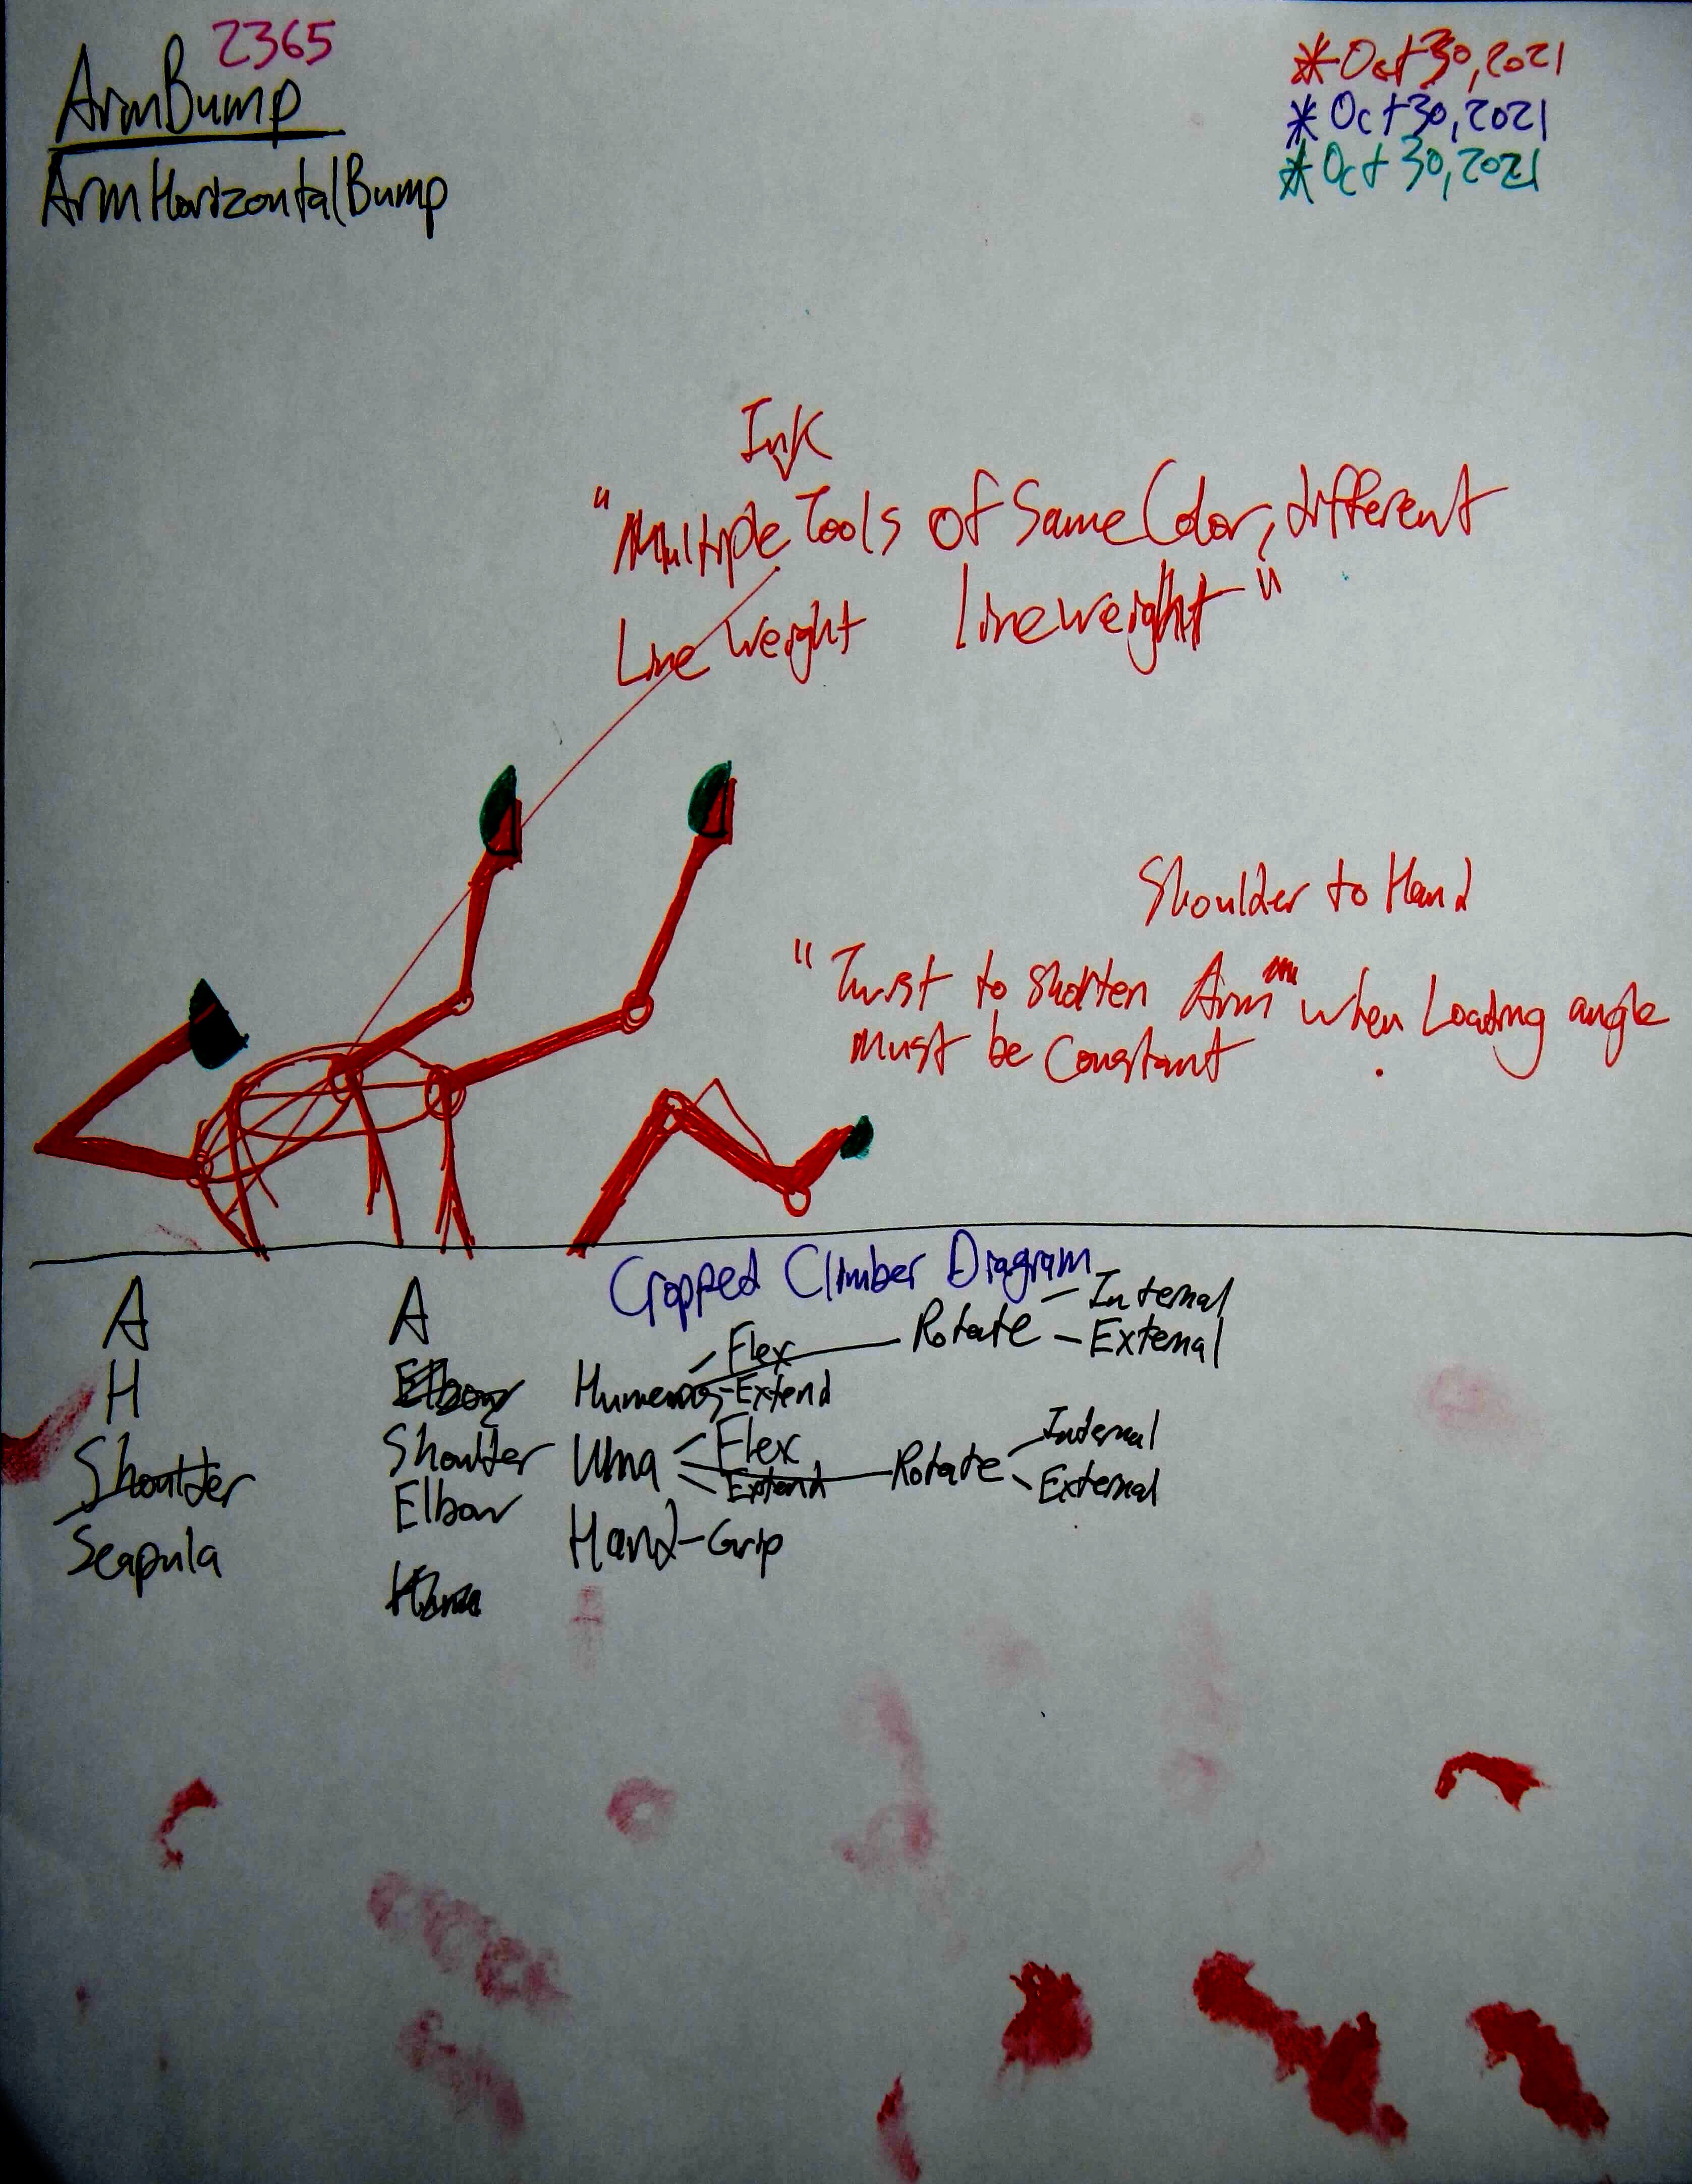 2365
ArmBump
ArmHorizontalBump
*Oct 30, 2021
*Oct 30, 2021
*Oct 30, 2021
Ink
"Multiple Tools of Same Color, different
Line Weight lineweight"
Shoulder to Hand
"Twist to Shorten Arm" when Loading angle
must be Constant.
Cropped Climber Diagram
A
H
Shoulder
Scapula
A
Elbow
Shoulder
Elbow
Humerus
Flex
Extend
Rotate
Internal
External
Ulna
Flex
Extend
Rotate
Internal
External
Hand-Grip